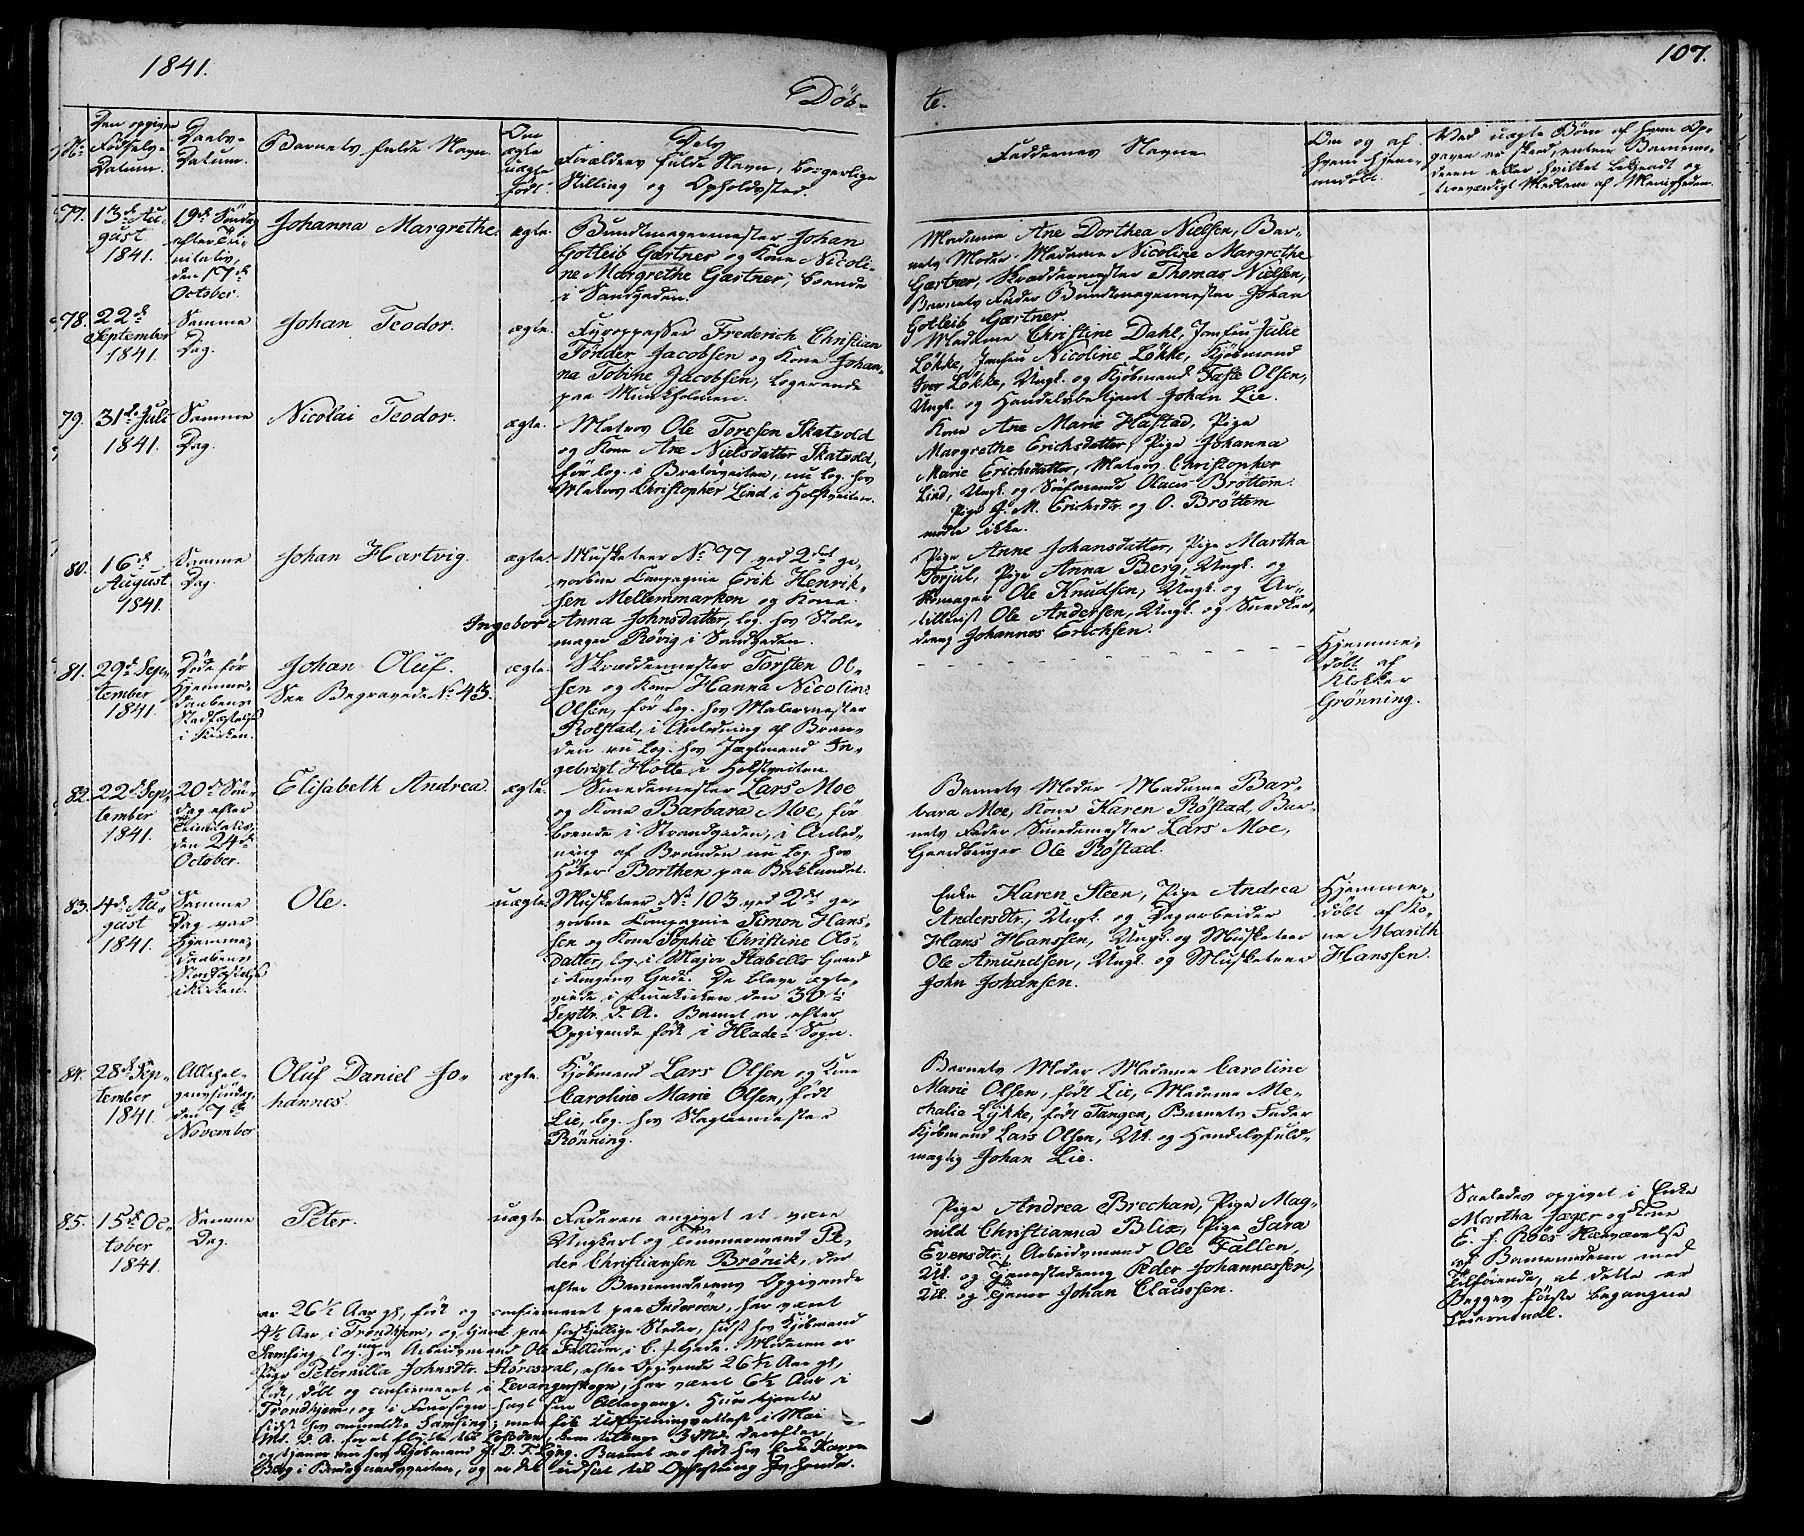 1841.
107.
Døb-
te.
No
Den opgivne
Fødsels-
Datum.
Daabs-
Datum.
Barnets fulde Navn
Om
ægte
uægte
født.
Dets
Forældres fulde Navn, borgerlige
Stilling og Opholdssted
Faddernes Navne
Om og af
hvem hjem-
medøbt.
Ved uægte Børn af hvem Op-
gaven er skeed, enten Barnemo-
deren eller hvilket bekjendt og
troværdigt Medlem af Menigheden.
77.
13de Au-
gust
1841.
19de Søndag
efter Tri-
nitatis,
den 17de
October.
Johanna Margrethe.
ægte.
Bundtmagermester Johan
Gotleib Gartner og Kone Nicoli-
ne Margrethe Gartner, boende
i Sandgaden.
Madame Ane Dorthea Nielsen, Bar-
nets Moder Madame Nicoline Margrethe
Gærtner, Skræddermester Thomas Nielsen,
Barnets Fader Bundtmagermester Johan
Gotleib Gærtner.
78.
22de
September
1841.
Samme
Dag.
Johan Teodor.
ægte.
Fyroppasser Frederich Christian
Tønder Jacobsen og Kone Johan-
na Tobine Jacobsen, logerende
paa Munkholmen.
Madame Christine Dahl, Jomfru Julie
Løkke, Jomfru Nicoline Løkke, Kjøbmand
Iver Løkke, Ungk. og Kjøbmand Faste Olsen,
Ungk. og Handelsbetjent Johan Lie.
79.
31te Juli
1841.
Samme
Dag.
Nicolai Teodor.
ægte.
Matros Ole Toresen Skatvold
og Kone Ane Nielsdatter Skatvold,
før log. i Bratørveiten, nu log. hos
Matros Christopher Lind i Holstveiten.
Kone Ane Marie Hastad, Pige
Margrethe Erichsdatter, Pige Johanna
Marie Erichsdatter, Matros Christopher
Lind, Ungk. og Søefarende Olaus Brøttem.
Pige J. M. Erichsdtr. og O. Brøttem
mødte ikke.
80.
16de
August
1841.
Samme
Dag.
Johan Hartvig.
ægte.
Musketeer No 77 ved 2det ge-
vorbne Compagnie Erik Henrik-
sen Mellemmarken og Kone
Ingebor Anna Johnsdatter, log. hos Stole-
mager Røvig i Sandgaden.
Pige Anne Johansdatter, Pige Martha
Torjul, Pige Anna Berg, Ungk. og
Skomager Ole Knudsen, Ungk. og Ar-
tillerist Ole Andersen, Ungk. og Smedker
dreng Johannes Erichsen.
81.
29de Sep-
tember
1841.
Døde før
Hjemme-
daabens
Stadfæstelse
i Kirken.
Johan Oluf.
See Begravede No 43.
ægte.
Skræddermester Torsten Ol-
sen og Kone Hanna Nicoline
Olsen, før log. hos Malermester
Rolstad, i Anledning af Bran-
den nu log. hos Jægtmand In-
gebrigt Hotte i Holstveiten.
Hjemme-
døbt af
Klokker
Grønning.
82.
22de Sep-
tember
1841.
20de Søn-
dag efter
Trinitatis,
den 24de
October.
Elisabeth Andrea.
ægte.
Smedemester Lars Moe
og Kone Barbara Moe, før
boende i Strandgaden, i Anled-
ning af Branden nu log. hos
Høker Borthen paa Baklandet.
Barnets Moder Madame Bar-
bara Moe, Kone Karen Røstad, Bar-
nets Fader Smedemester Lars Moe,
Gaardbruger Ole Røstad.
83.
14de Au-
gust
1841.
Samme
Dag var
Hjemme-
daabens
Stadfæstelse
i Kirken.
Ole.
uægte.
Musketeer No 103 ved 2det ge-
vorbne Compagnie Simon Hans-
sen og Kone Sophie Christine Ols-
datter, log. i Major Stabells Gaard
i Kongens Gade. De bleve ægte-
viede i Fruekirken den 30te
Septbr. d. A. Barnet er efter
Opgivende født i Hlade-Sogn.
Enke Karen Steen, Pige Andrea
Andersdtr., Ungk. og Dagarbeider
Hans Hanssen, Ungk. og Musketeer
Ole Amundsen, Ungk. og Musketeer
John Johansen.
Hjemme-
døbt af Ko-
ne Marith
Hanssen.
84.
28de Sep-
tember
1841.
Allehel-
gensSøndag,
den 7de
November
Oluf Daniel Jo-
hannes.
ægte.
Kjøbmand Lars Olsen og Kone
Caroline Marie Olsen, født
Lie, log. hos Slagtermester
Rønning.
Barnets Moder Madame Caroline
Marie Olsen, født Lie, Madame Me-
chalia Lykke, født Tangen, Barnets Fader
Kjøbmand Lars Olsen, UK. og Handelsfuld-
mægtig Johan Lie.
85.
15de Oc-
tober
1841.
Samme
Dag.
Peter.
uægte.
Faderen angivet at være
Ungkarl og Tømmermand Pe-
der Christiansen Brønik, der
efter Barnemoderens Opgivende
er 26 1/2 Aar gl., født og confirmeret paa Inderøen, har været
4 1/2 Aar i Trondhjem, og tjent paa forskjellige Steder, sidst hos Kjøbmand
Samsing, log. nu hos Arbeidsmand Ole Fallium i C. J. Gade. Moderen er
Pige Peternilla Johnsdtr. Støresval, efter Opgivende 26 1/2 Aar gl.,
født, døbt og confirmeret i Levangerskogn, har været 6 1/2 Aar i
Trondhjem, og i Fruesogn havt sin Altergang. Hun tjente
sidst hos anmeldte Samsing; men fik Udflytningsattest i Mai
Md. d. A. for at flytte til Lofoden, kom tilbage 3 Md. derefter,
tjener nu hos Kjøbmand H. D. F. Lyng. Barnet er født hos Enke Karen
Berg i Bondegaardsveiten, og er det udsat til Opfostring hos hende.
Pige Andrea Brechan, Pige Mag-
nild Christianna Blix, Pige Sara
Evensdtr., Arbeidsmand Ole Fallen,
UK. og Tjenestedreng Peder Johannessen,
UK. og Tjener Johan Claussen.
Saaledes opgivet i Enke
Martha Jæger og Kone
E. J. Røes Nærværelse
af Barnemoderen med
Tilføiende, at dette er
Begges første begangne
Leiermaal.